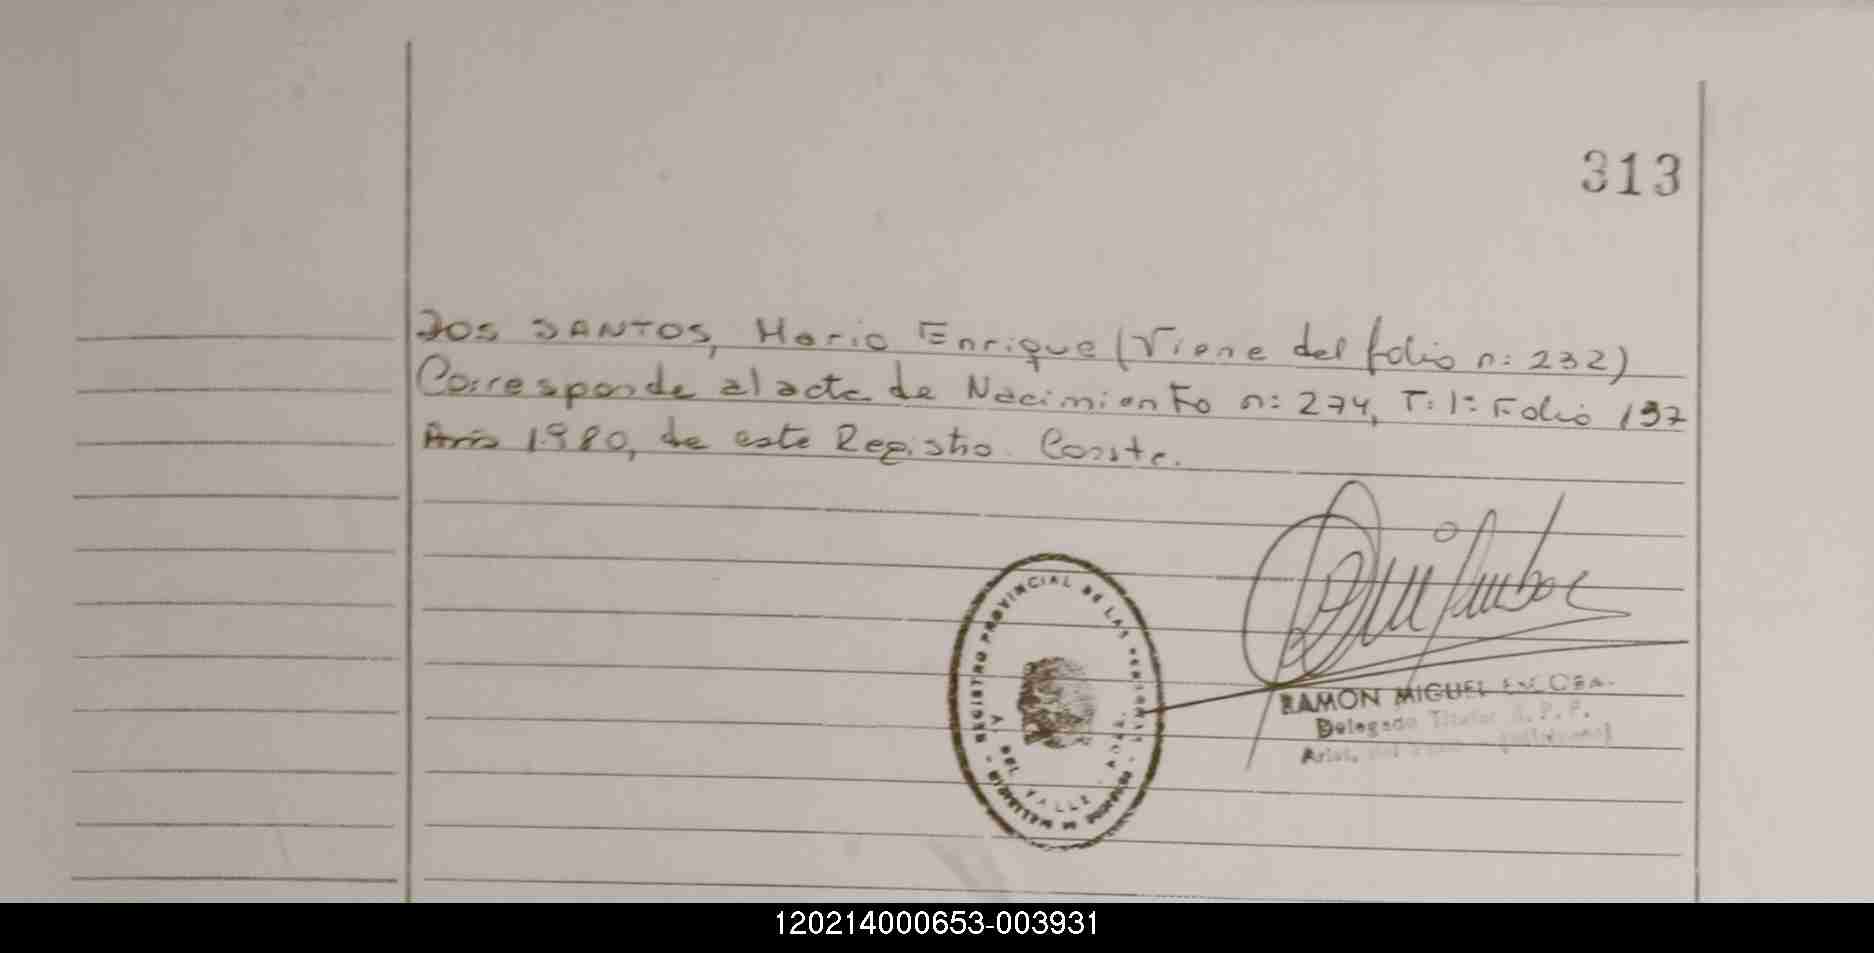 313
DOS SANTOS, Mario Enrique (Viene del folio n: 232)
Corresponde al acta de Nacimiento n: 274, T: 1: Folio 197
Año 1980, de este Registro. Conste.
REGISTRO PROVINCIAL DE LAS PERSONAS
DEL VALLE
RAMON MIGUEL
Delegado Titular R. P. P.
120214000653-003931